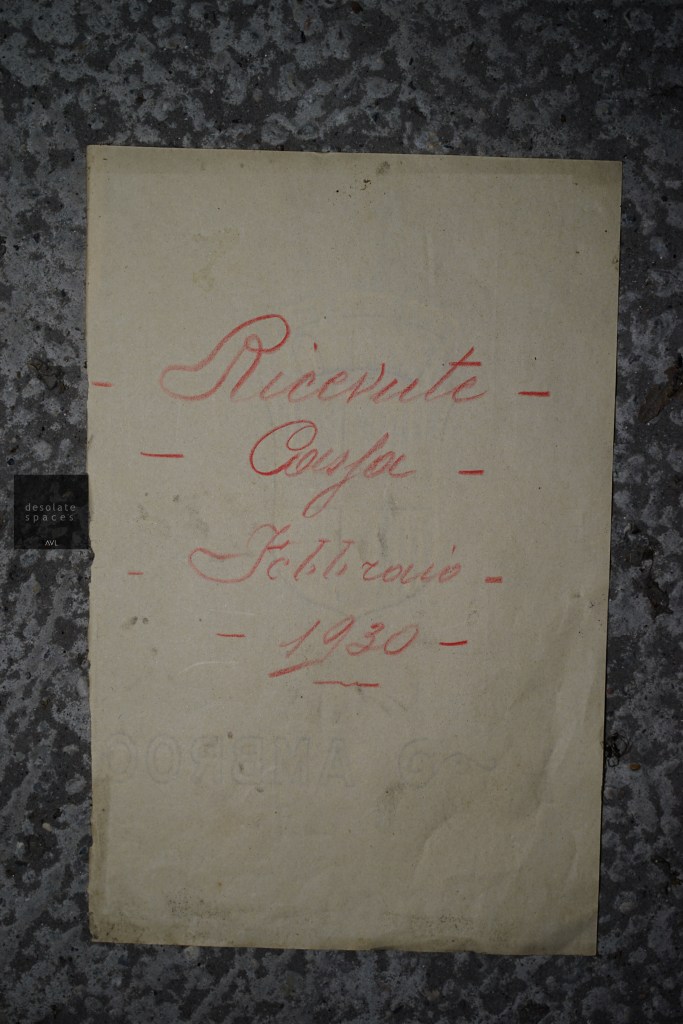 - Ricevute -
- Cassa -
- Febbraio -
- 1930 -
desolate
spaces
AVL